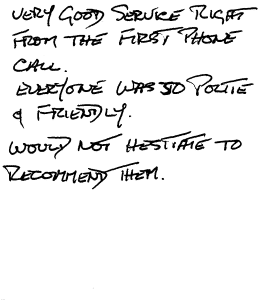 VERY GOOD SERVICE RIGHT
FROM THE FIRST PHONE
CALL.
EVERYONE WAS SO POLITE
& FRIENDLY.
WOULD NOT HESTIATE TO
RECOMMEND THEM.